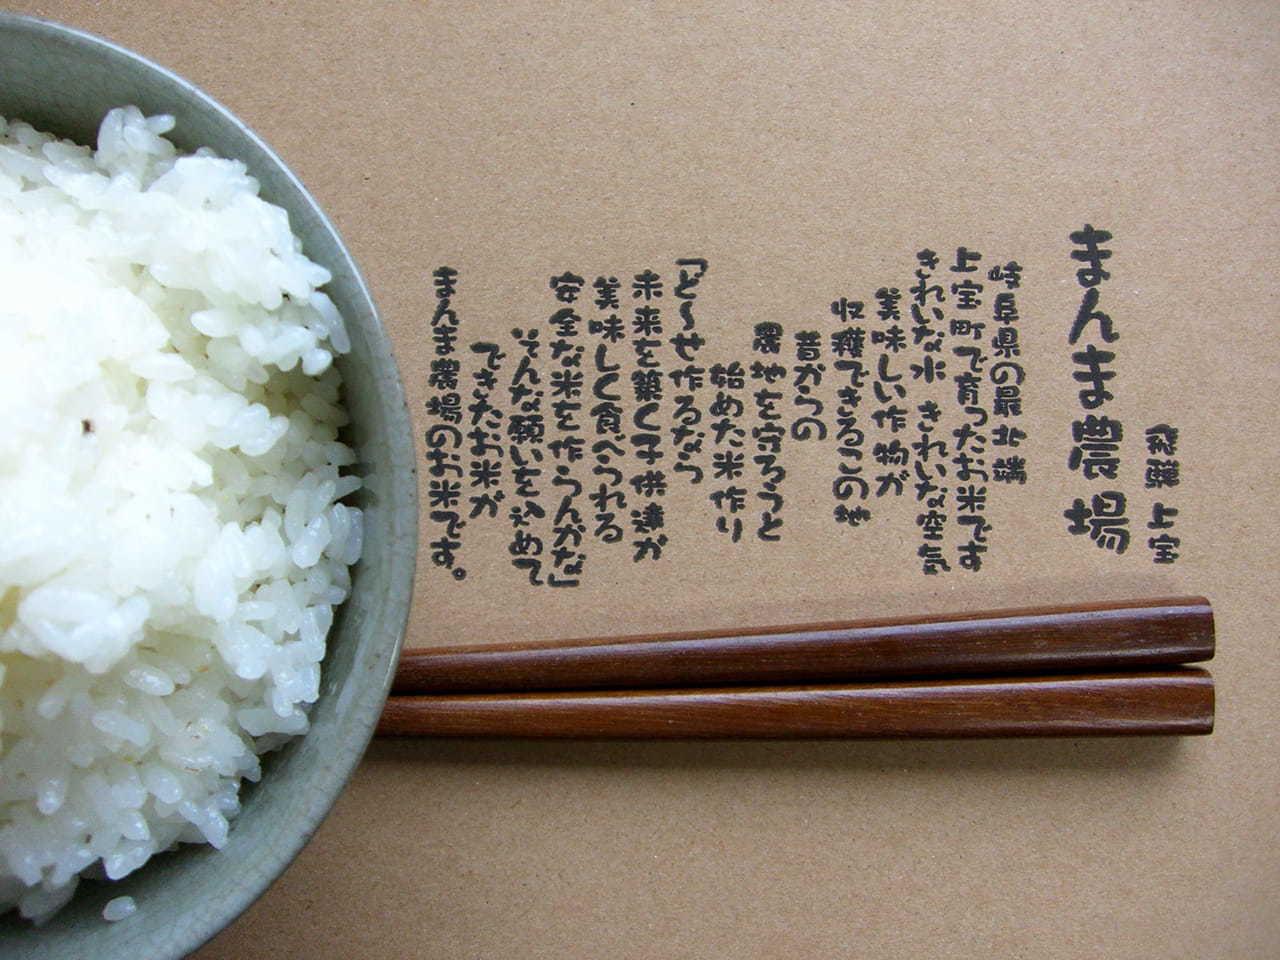 飛騨 上宝
まんま農場
岐阜県の最北端
上宝町で育ったお米です
きれいな水 きれいな空気
美味しい作物が
収穫できるこの地
昔からの
農地を守ろうと
始めた米作り
「ど～せ作るなら
未来を築く子供達が
美味しく食べられる
安全な米を作らんかな」
そんな願いを込めて
できたお米が
まんま農場のお米です。